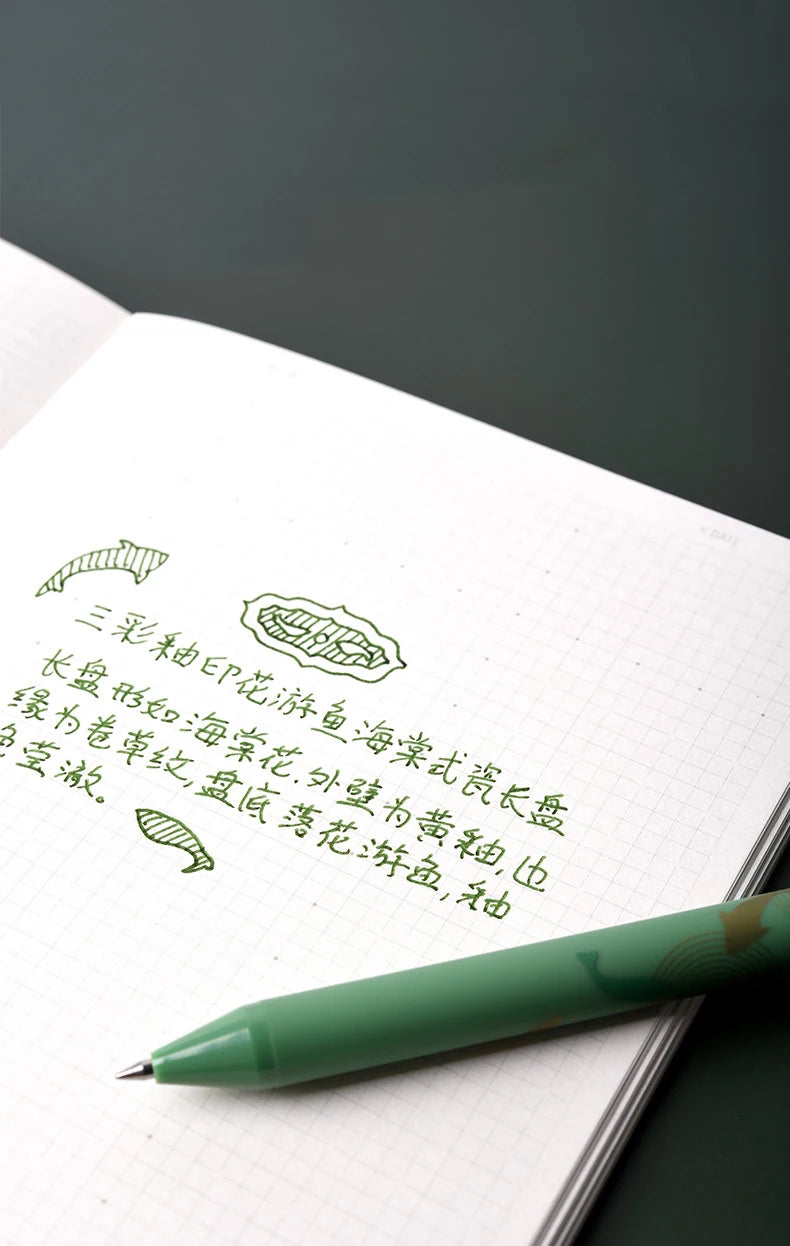 < DATE
三彩釉印花游鱼海棠式瓷长盘
长盘形如海棠花.外壁为黄釉,边
缘为卷草纹,盘底落花游鱼,釉
色莹澈。